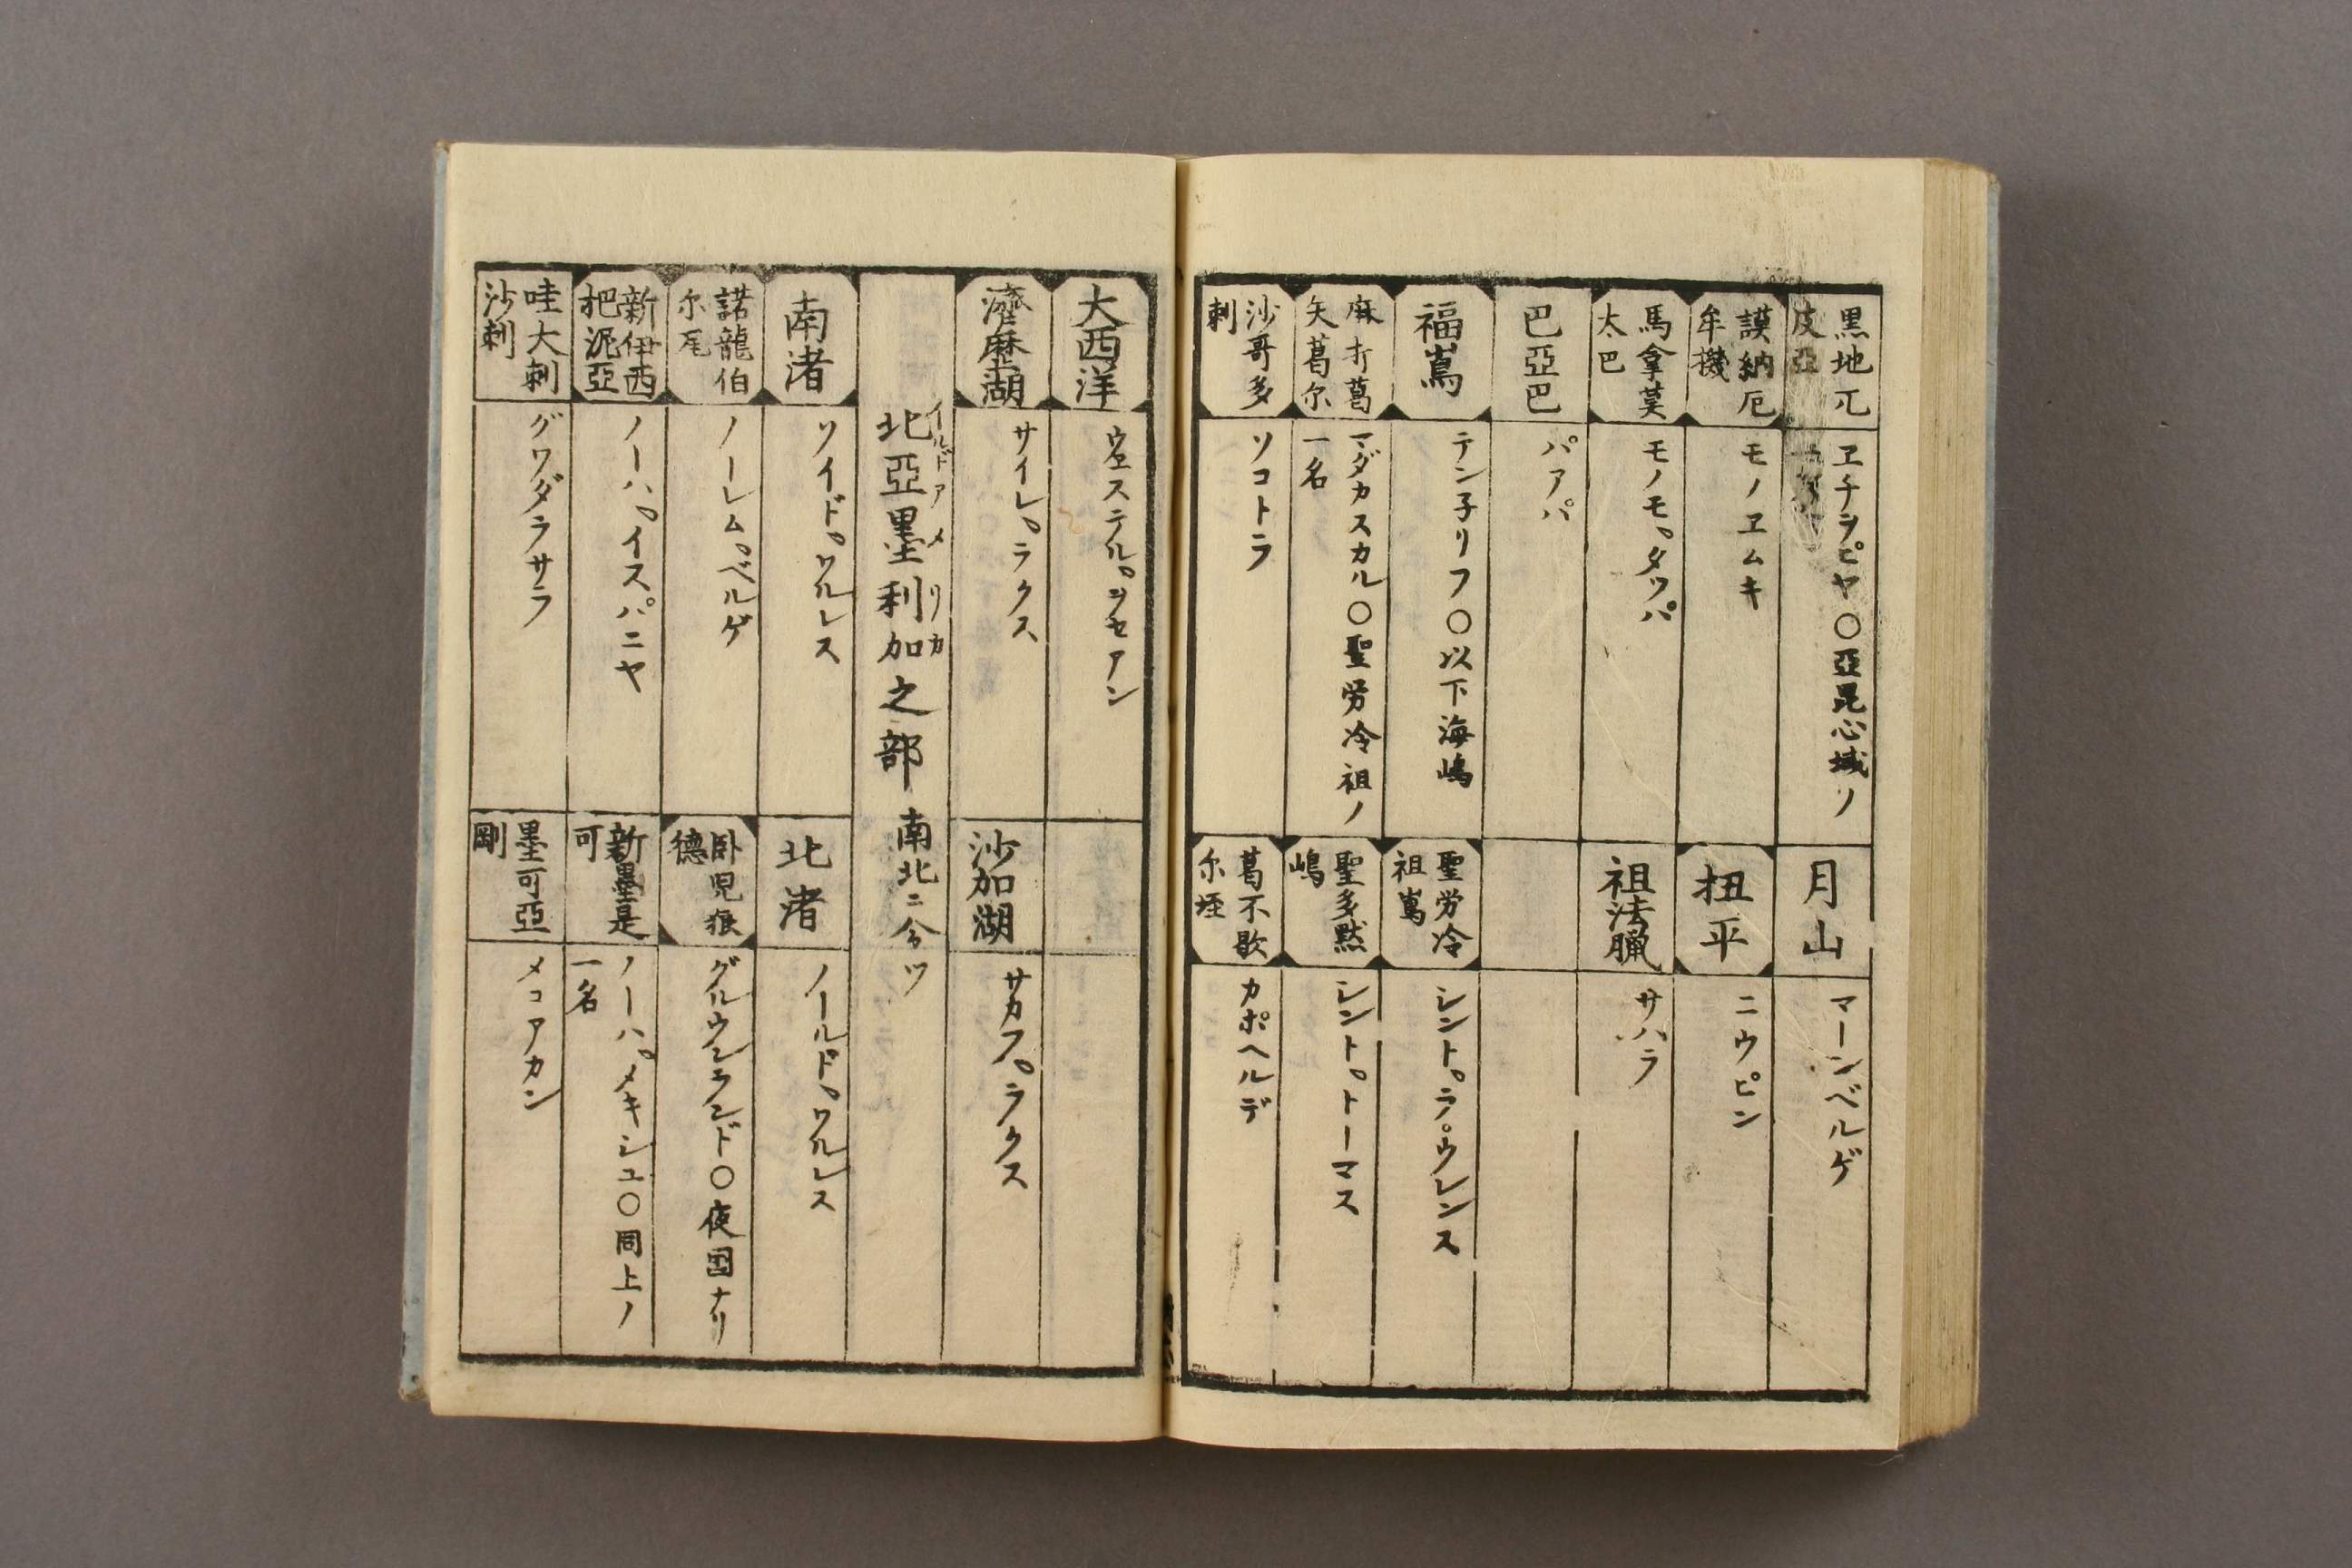 黒地兀
皮亞
ヱチヲピヤ〇亞毘心域ノ
一名
月山
マーンベルゲ
謨納厄
牟機
モノヱムキ
扭平
ニウピン
馬拿莫
太巴
モノモ。タツパ
祖法臘
サハラ
巴亞巴
パアパ
福嶌
テン子リフ〇以下海嶋
聖労冷
祖嶌
シント。ラ。ウレンス
麻打葛
矢葛尓
マダカスカル〇聖労冷祖ノ
一名
聖多黙
嶋
シント。トーマス
沙哥多
剌
ソコトラ
葛不歌
尓垤
カポヘルデ
大西洋
ウエステル。ヲセアン
濟歴湖
サイレ。ラクス
沙加湖
サカフ。ラクス
北亞墨利加之部 南北ニ分ツ
イルドアメリカ
南渚
ソイド。ワルレス
北渚
ノールド。ワルレス
諾龍伯
尓尾
ノーレム。ベルゲ
臥児狼
德
グルウンランド〇夜国ナリ
新伊西
把泥亞
ノーハ。イスパニヤ
新墨是
可
ノーハ。メキシユ〇同上ノ
一名
哇大剌
沙剌
グワダラサラ
墨可亞
剛
メコアカン